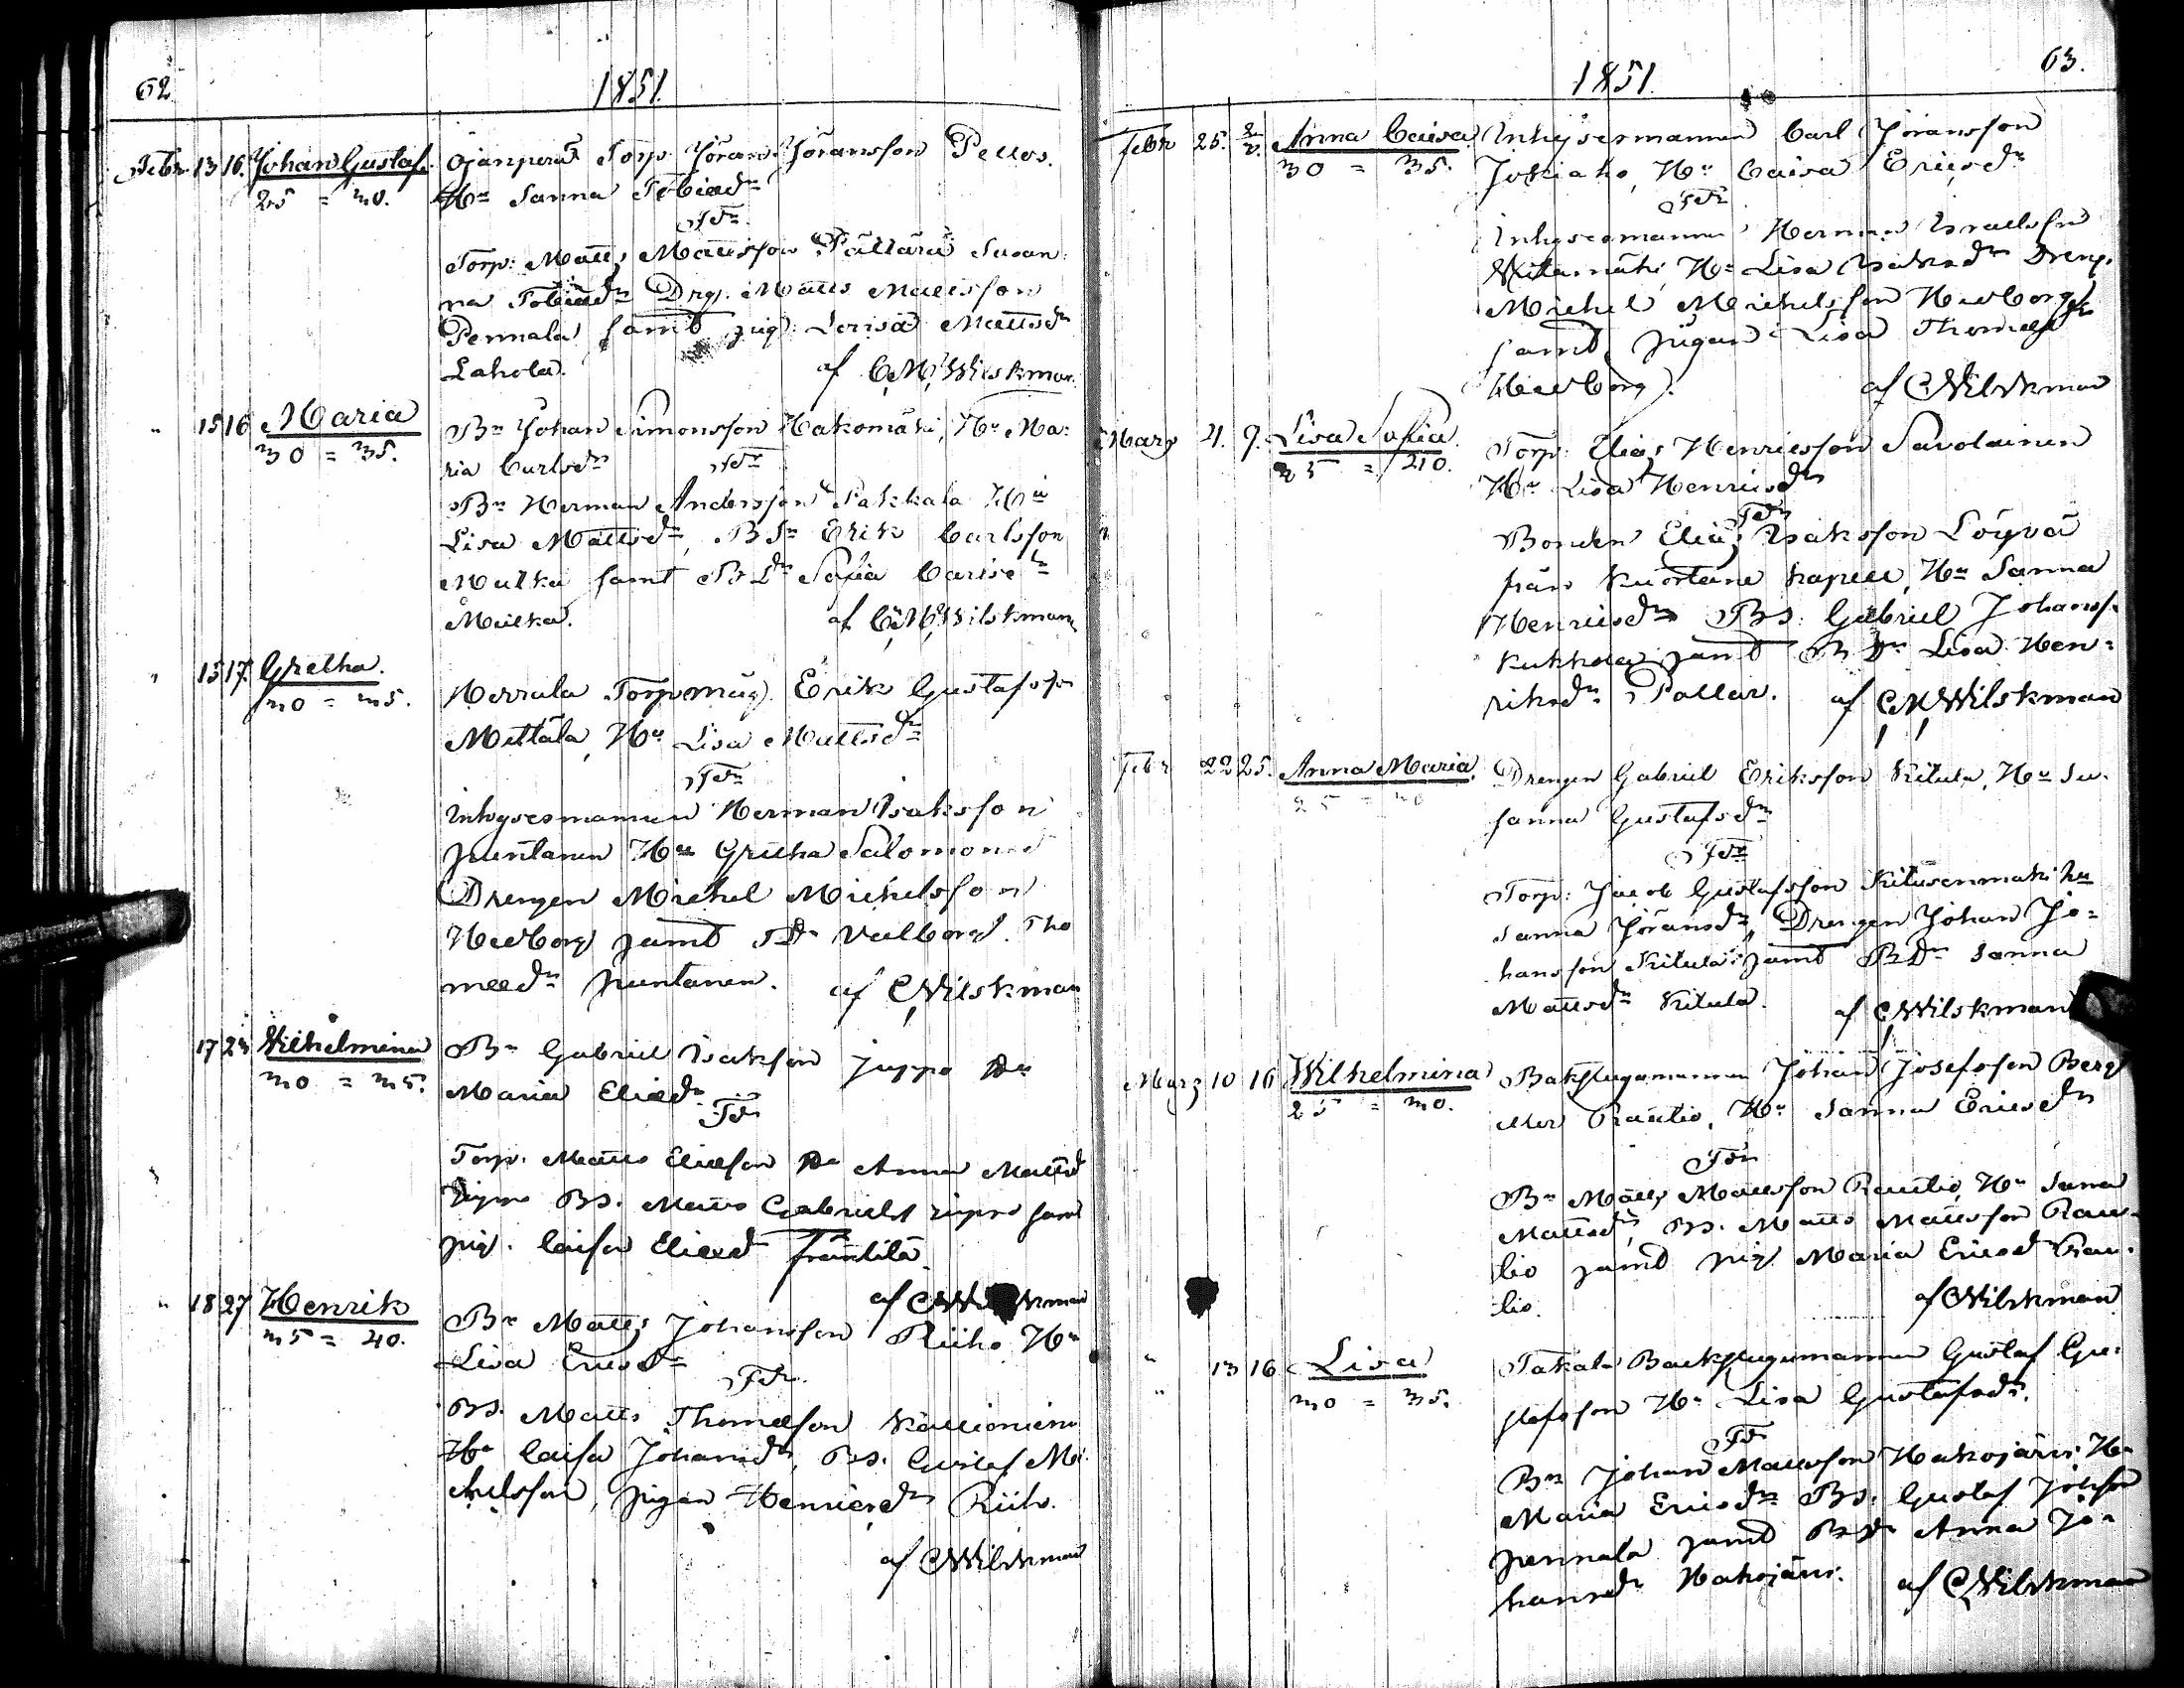 62
1851.
Febr. 13 16. Johan Gustaf. Ojanperä Torp. Jöran Jöransson Pellos.
25 = 30. Hu Sanna Tobiædr
Fdr.
Torp: Matts Mattsson Pältäri Susan:
na Tobiædr Drg. Matts Mattsson
Pennala samt pig: Lovisa Mattsdr
Lahola. af C,M,Wilskman.
" 15 16 Maria Bn Johan Simonsson Hakomäki, Hu Ma:
30 = 35. ria Carlsdr Fdr
Bn Herman Andersson Pakkala Hu
Lisa Mattsdr, BSn Erik Carlsson
Mulka samt BDr Sofia Carlsdr
Mulka. af C,M,Wilskman
" 15 17. Gretha. Herrala Torpmåg Erik Gustafsson
30 = 35. Mettälä, Hu Lisa Mattsdr
Fdr
Inhysesmannen Herman Isaksson
Puntanen Hu Gretha Salomonsd
Drengen Michel Michelsson
Hedborg samt TDr Valborg Tho
mædr Puntanen. af CWilskman
17 23 Wilhelmina Bn Gabriel Isaksson Juppo Hu
30 = 35. Maria Eliædr
Fdr
Torp. Matts Eliæson Hu Anna Mattsd
BS. Matts Gabriels samt
pig. Caisa Eliæd Fränttilä.
af CWilskman
" 18 27 Henrik Bn Matts Johansson Riiho Hu
35 = 40. Lisa Ericsdr
Fdr.
BS. Matts Thomæson Kallioniemi
Hu Caisa Johansdr, BS. Gustaf Mi
chelsson, pigan Henricsdr Riiho.
af CWilskman
1851. 63.
Febr 25. 2/3. Anna Caisa Inhysesmannen Carl Jöransson
30 = 35. Jokiaho, Hu Caisa Ericsdr
Fdr
Inhysesmannen Herman Israelsson
Kitusmäki, Hu Lisa Isaksdr Dreng.
Michel Michelsson Hedborg
samt pigan Lisa Thomædr
Hedborg. af CWilskman
Mars 4. 9. Lisa Sofia. Torp: Elias Henricsson Savolainen
35 = 40. Hu Lisa Henricsdr
Fdr
Bonden Elias Isaksson Löyvä
från Kuortane kapell, Hu Sanna
Henricsdr BS. Gabriel Johanss.
Kukkola samt BDr Lisa Hen:
riksdr Pollar. af C,M,Wilskman
Febr 22 25. Anna Maria. Drengen Gabriel Eriksson Kitula, Hu Su:
25 = 30 sanna Gustafsdr
Fdr
Torp: Jacob Gustafsson Kitusenmäki Hu
Sanna Jöransdr, Drengen Johan Jo=
hansson Kitula samt BDr Sanna
Mattsdr Kitula. af CWilskman
Mars 10 16 Wilhelmina Bakstugumannen Johan Josefsson Berg
25 = 30. eller Rautio, Hu Sanna Ericsdr
Fdr
Bn Matts Mattsson Rautio, Hu Sanna
Mattsdr, BS. Matts Mattsson Rau=
tio samt pig. Maria Ericsdr Rau:
tio. af CWilskman
" 13 16 Lisa Takala Backstugumannen Gustaf Gu:
30 = 35. stafsson Hu Lisa Gustafsdr.
Fdr
Bn Johan Mattsson Hakojärvi Hu
Maria Ericsdr BS. Gustaf Johsson
Pennala samt BDr Anna Jo=
hansdr Hakojärvi. af CWilskman